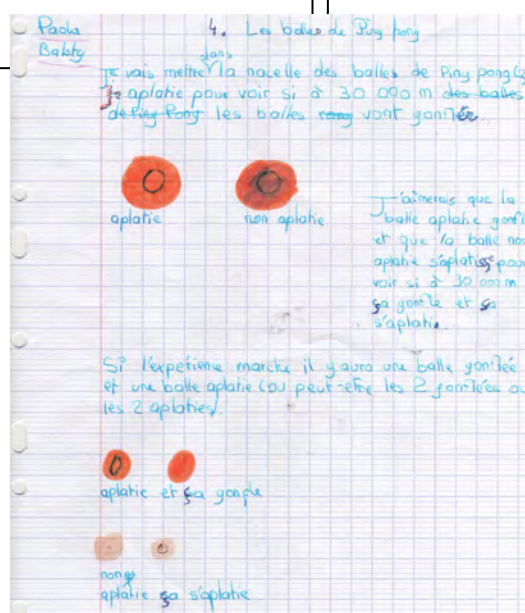 Paola
Babty
4. Les balles de Ping pong
dans
Je vais mettre la nacelle des balles de Ping pong (2
je aplatie pour voir si à 30 000 m des balles
de Ping Pong les balles rong vont gonfler.
aplatie
non aplatie
J'aimerais que la
balle aplatie gonfle
et que la balle non
aplatie s'aplatisse pour
voir si à 30 000 m
ça gonfle et ça
s'aplatie.
Si l'expérience marche il y aura une balle gonflée
et une balle aplatie (ou peut-etre les 2 gonflées ou
les 2 aplaties).
aplatie et ça gonfle
non
aplatie ça s'aplatie